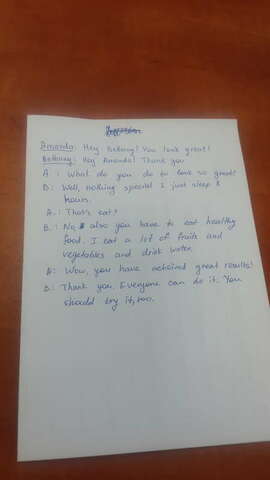 Amanda: Hey, Bethany! You look great!
Bethany: Hey Amanda! Thank you
A: What do you do to look so great?
B: Well, nothing special I just sleep 8
hours.
A: That's eat?
B: No, also you have to eat healthy
food. I eat a lot of fruits and
vegetables and drink water.
A: Wow, you have achieved great results!
B: Thank you. Everyone can do it. You
should try it, too.